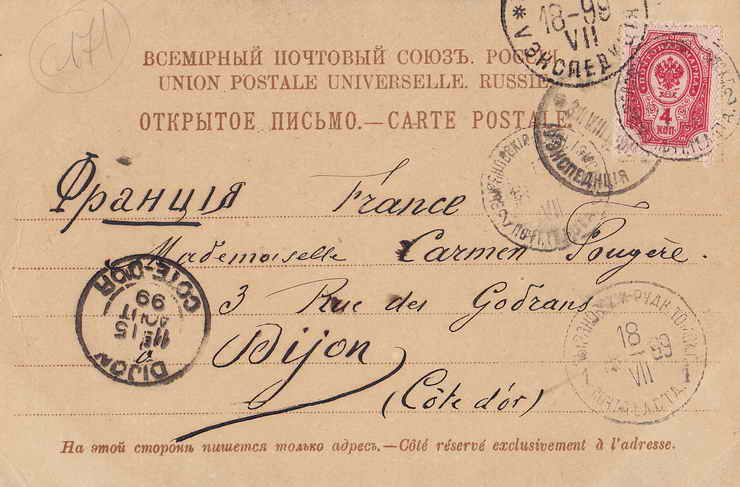 171
ВСЕМІРНЫЙ ПОЧТОВЫЙ СОЮЗЪ. РОССІЯ
UNION POSTALE UNIVERSELLE. RUSSIE
ОТКРЫТОЕ ПИСЬМО.—CARTE POSTALE.
18-99
VII
4
КОП
ЭКСПЕДИЦІЯ
Франція France
Mademoiselle Carmen Pougère.
3 Rue des Godrans
Dijon
(Côte d'or)
DIJON
15
AOUT
99
COTE-D'OR
18
99
VII
1
1
На этой сторонѣ пишется только адресъ.—Côté réservé exclusivement à l'adresse.